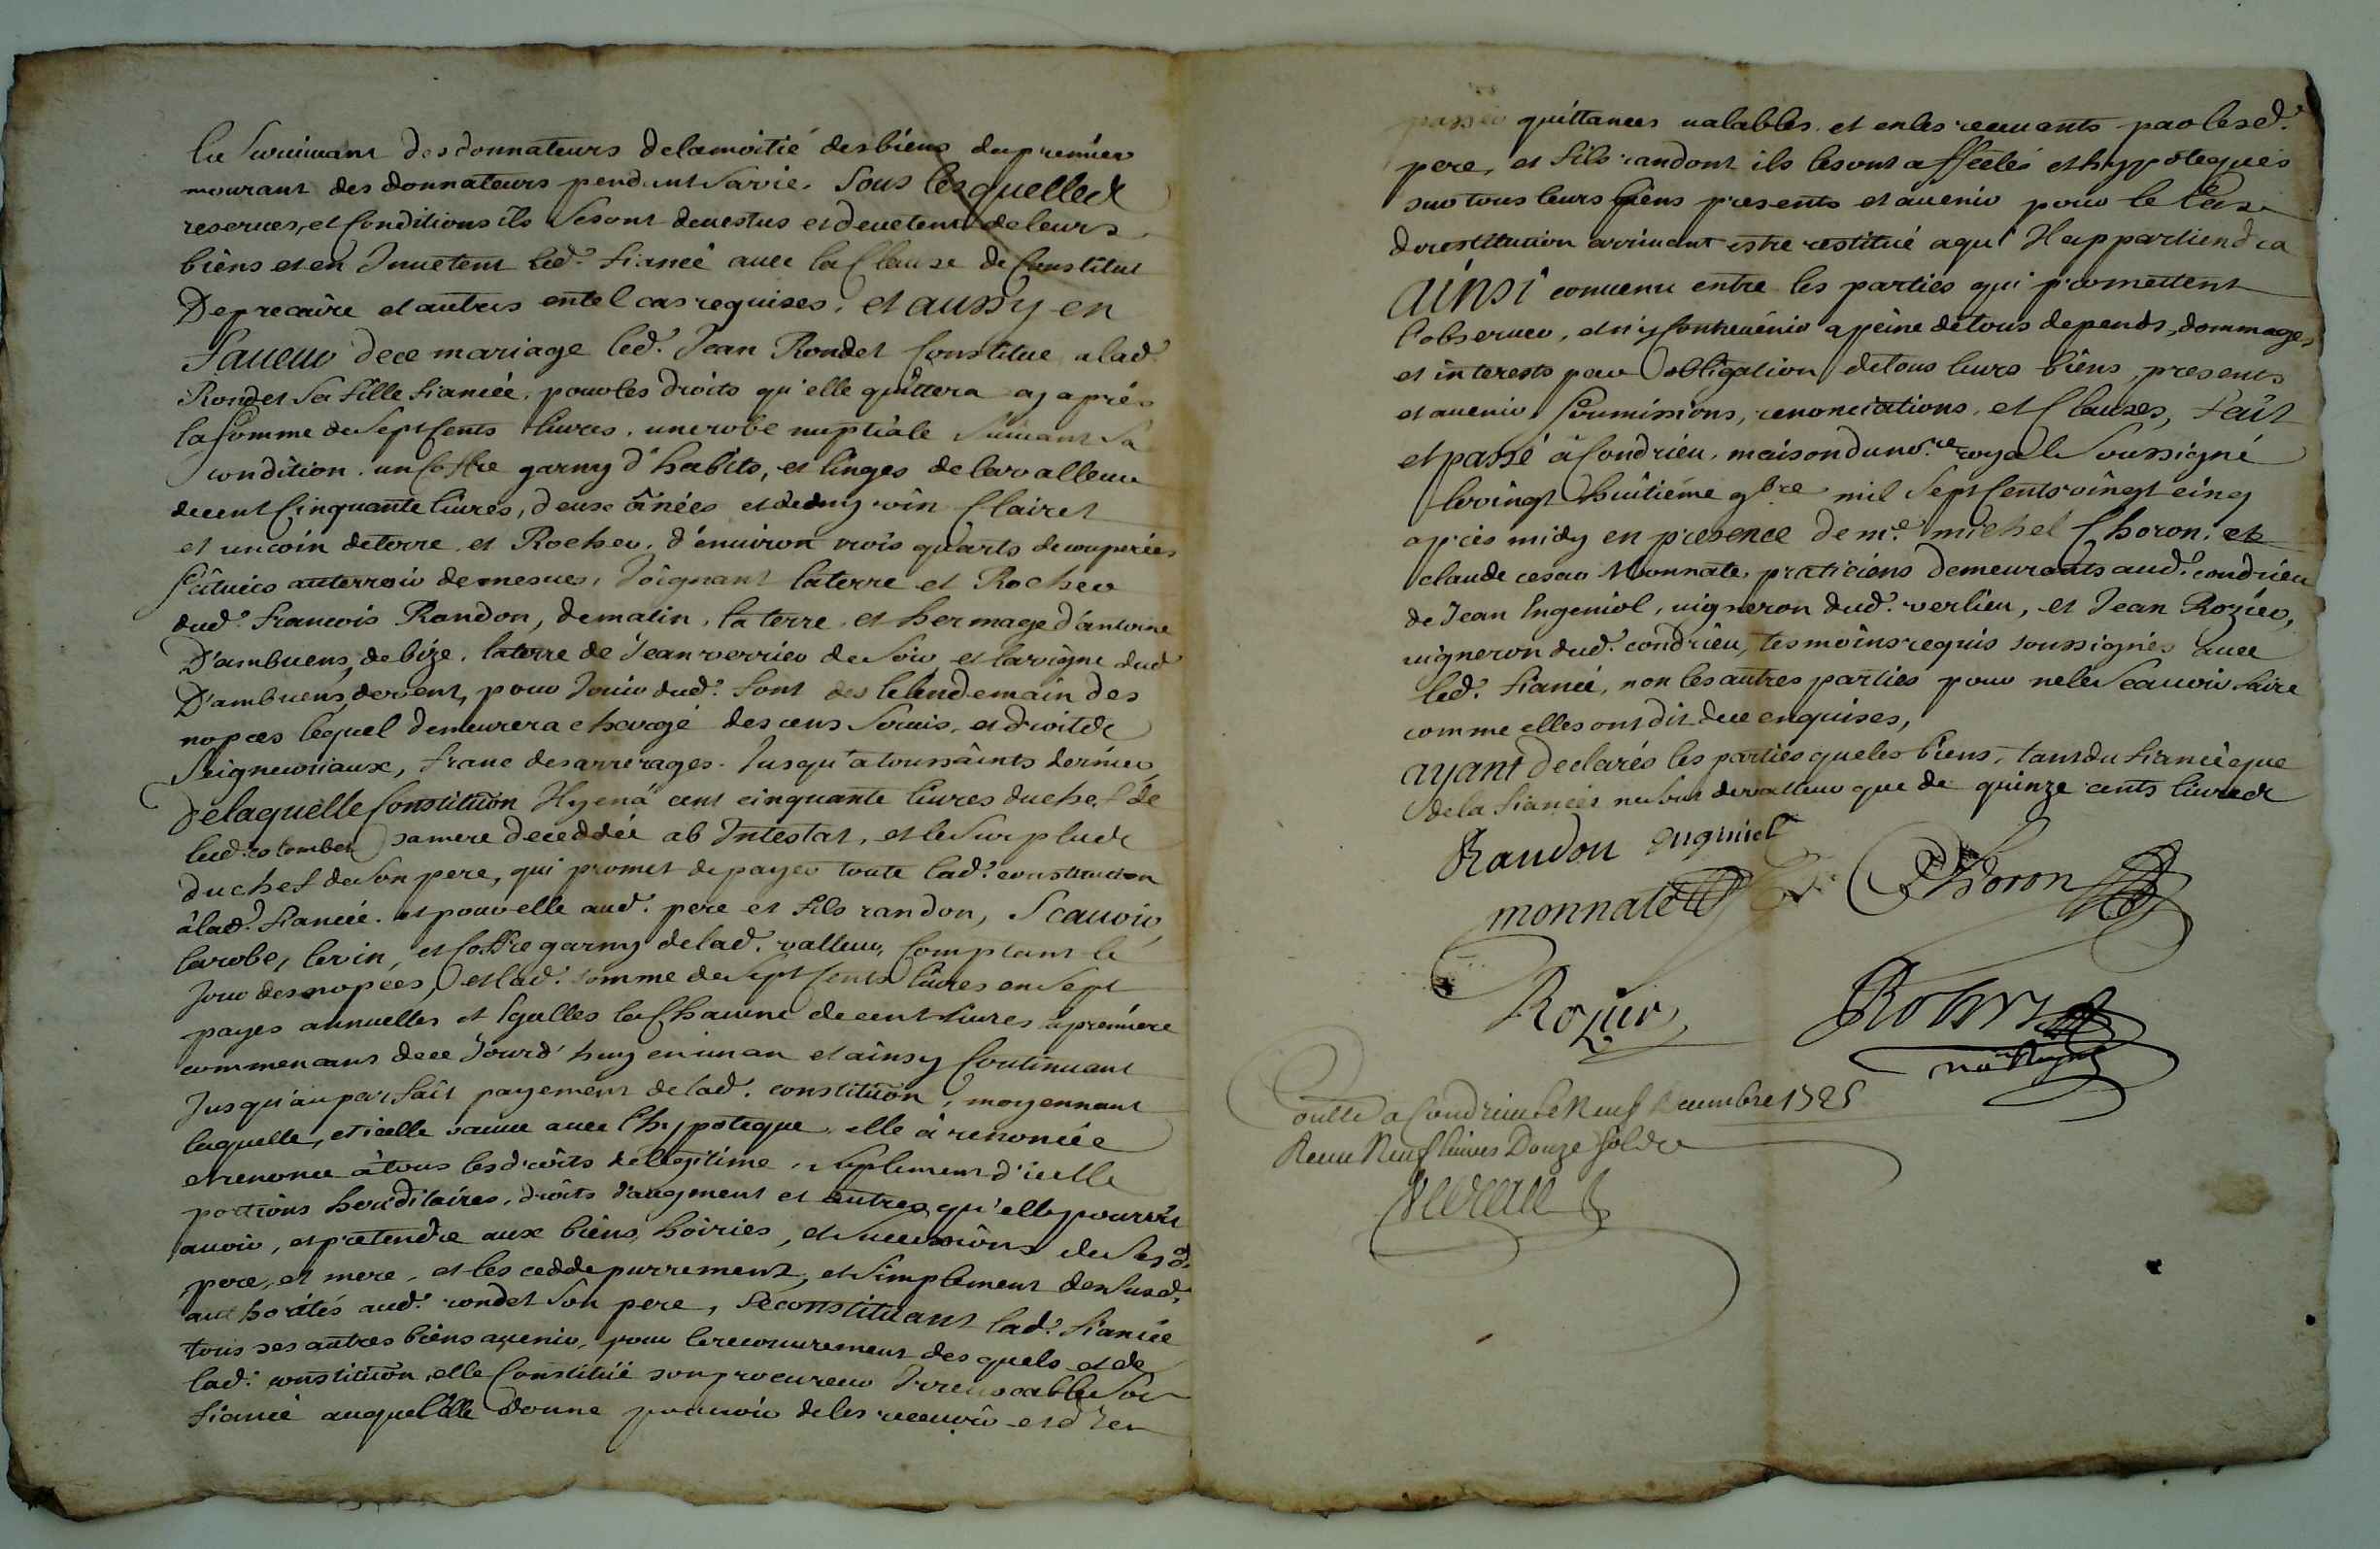 le Suruiuant des donnateurs de la moitié des biens du premier
mourant des donnateurs pendant Sa vie. Sous lesquelles
reserues, et Conditions ils Se sont deuestus et deuetent de leurs
biens et en Inuetent led. fiancé auec la Clause de Constitut
De precaire et autres en tel cas requises. et aussy en
faueur de ce mariage led. Jean Rondet Constitue a lad.
Rondet Sa fille fiancée, pour les droits qu'elle quittera cy aprés
la Somme de Sept Cents liures, une robe nuptiale Suiuant Sa
condition, un Coffre garny d'habits, et linges de la valleur
de cent Cinquante liures, deux ânées et demy vin Clairet
et un coin de terre et Rocher, d'enuiron trois quarts de couperées
Scitués au terroir de mesues, Joignant la terre et Rocher
dud. francois Randon, de matin, la terre et hermage d'antoine
D'ambuens, de bize, la terre de Jean verrier de Soir et la vigne dud
D'ambuens, de vent, pour Jouir dud. font des le lendemain des
nopces lequel demeurera chargé des cens Seruis, et droits
Seigneuriaux, franc des arrerages Jusqu'a toussaints dernier,
de laquelle Constitution Il y en a cent cinquante liures du chef de
sa mere deceddée ab Intestat, et le Surplus
du chef de Son pere, qui promet de payer toute lad. constitution
à lad. fiancée. et pour elle aud. pere et fils randon, Scauoir,
la robe, le vin, et Coffre garny de lad. valleur, Comptant le
Jour des nopces, et lad. somme de Sept Cents liures en Sept
payes annuelles et Egalles la Chacune de cent liures la premiere
commencant de ce Jourd'huy en un an et ainsy Continuant
Jusqu'au parfait payement de lad. constitution, moyennant
laquelle, et icelle sauue auec l'hypoteque elle à renoncée
et renonce à tous les droits de legitime, Suplement d'icelle
portions hereditaires, droits d'augment et autres qu'elle pourroit
auoir, et pretendre aux biens, hoiries, et Successions de Sesd.
pere, et mere, et les cedde purrement, et Simplement des Susd.
authorités aud. rondet Son pere, Se constituant lad. fiancée
tous ses autres biens auenir, pour le recouurement des quels et de
lad. constitution, elle Constitüé son procureur Irreuocable Son
fiancé auquel Elle donne pouuoir de les receuoir et d'en
passer quittances ualables et en les receuants par lesd.
pere, et fils randont ils les ont affectés et hyppotequés
sur tous leurs biens presents et auenir pour le Cas
de restitution arriuant estre restitué a qui Il appartiendra
Ainsi conuenu entre les parties qui promettent
l'obseruer, et n'y Contreuenir a peine de tous depends, dommages,
et interests par obligation de tous leurs biens presents
et auenir Soumissions, renonciations, et Clauses, fait
et passé à Condrieu, maison du no.re royal Soussigné
le vingt huitiéme 9bre mil Sept Cents vingt cinq
aprés midy en presence de m.e michel Choron, et
claude cesar Monnate, praticiens demeurants aud. condrieu
de Jean Engeniol, uigneron dud. verlieu, et Jean Rozier,
uigneron dud. condrieu, tesmoins requis soussignés auec
led. fiancé, non les autres parties pour ne le Scauoir faire
comme elles ont dit de ce enquises,
ayant declarés les parties que les biens, tant du fiancé que
de la fiancée ne Sont de valleur que de quinze cents liures
Randon
monnate Choron
Rozier Robert
Conttlé a Condrieu le Neuf decembre 1725
Receu Neuf liures Douze Solds